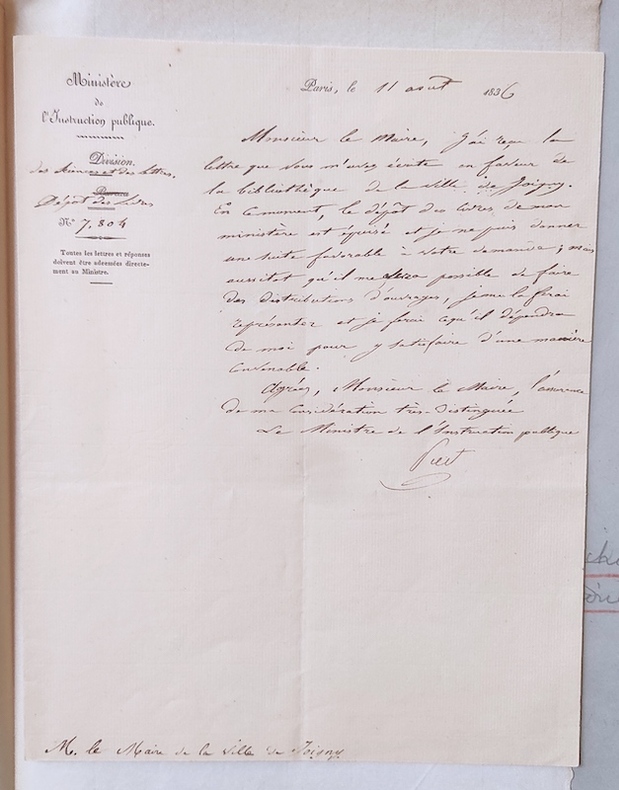 Ministère
de
l'Instruction publique.
Division
des Sciences et des Lettres.
Bureau
Dépôt des Livres
N° 7,804
Toutes les lettres et réponses
doivent être adressées directe-
ment au Ministre.
Paris, le 11 aout 1836
Monsieur le Maire, j'ai reçu la
lettre que vous m'avez écrite en faveur de
la bibliothèque de la ville de Joigny.
En ce moment, le dépôt des livres de mon
ministère est épuisé et je ne puis donner
une suite favorable à votre demande ; mais
aussitot qu'il me sera possible de faire
des distributions d'ouvrages, je me la ferai
représenter et je ferai ce qu'il dépendra
de moi pour y satisfaire d'une manière
convenable.
Agréez, Monsieur le Maire, l'assurance
de ma considération très-distinguée
Le Ministre de l'Instruction publique
M. le Maire de la ville de Joigny